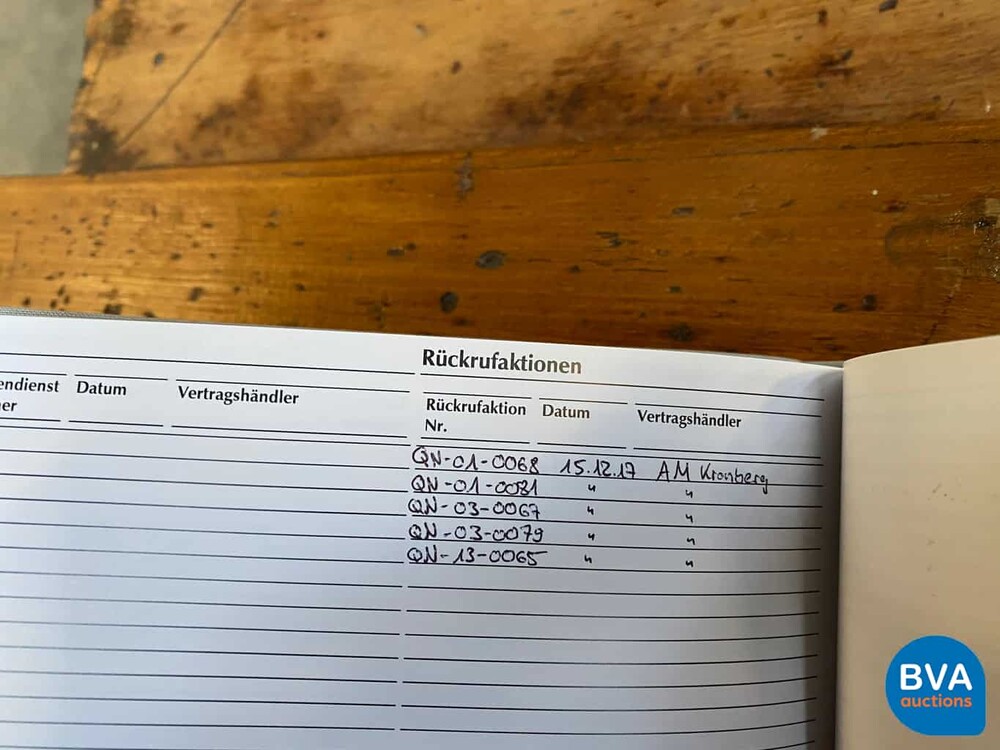 Rückrufaktionen
endienst Datum Vertragshändler
er
Rückrufaktion Datum Vertragshändler
Nr.
QN-01-0068 15.12.17 AM Kronberg
QN-01-0081 " "
QN-03-0067 " "
QN-03-0079 " "
QN-13-0065 " "
BVA
auctions